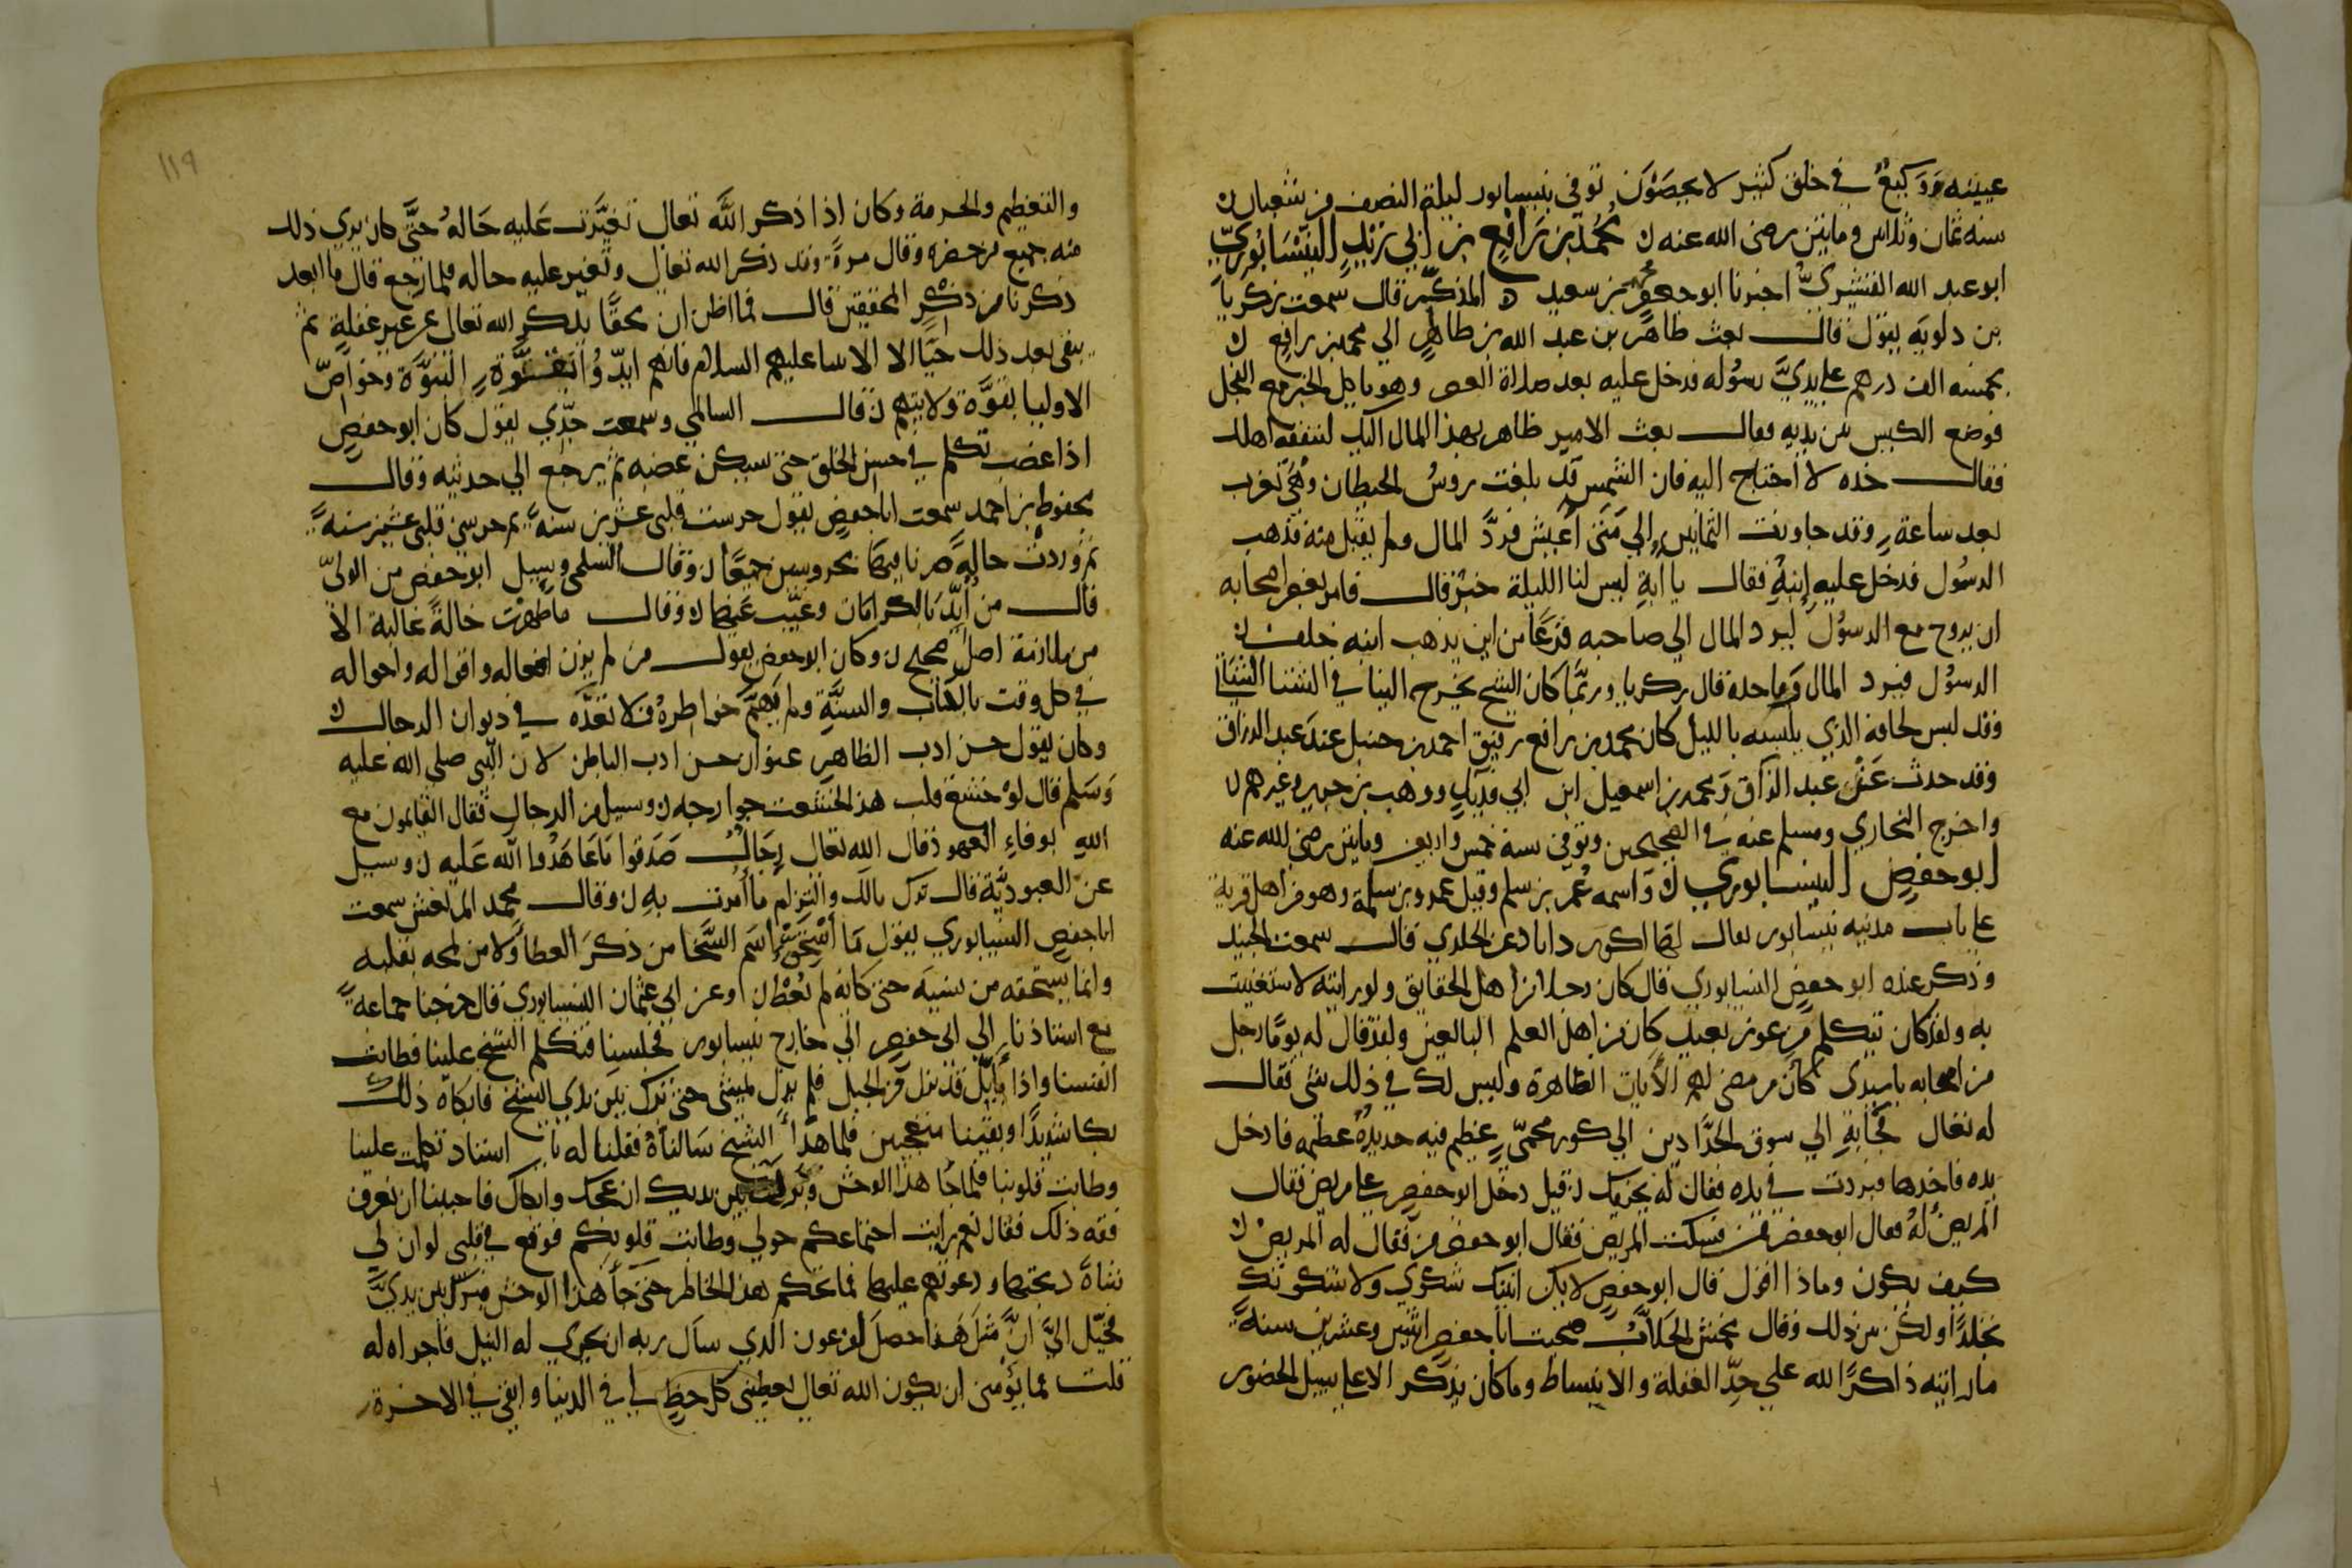 عيينه ووكيع في خلق كثير لا يحصون توفي بنيسابور ليلة النصف من شعبان
سنه ثمان وثلاثين ومايتين رضي الله عنه محمد بن رافع بن ابي زيد النيسابوري
ابو عبد الله القشيري اخبرنا ابو جعفر محمد بن سعيد المذكر قال سمعت زكريا
بن دلويه يقول قال بعث طاهر بن عبد الله بن طاهر الي محمد بن رافع
بخمسه الف درهم علي يدي رسوله فدخل عليه بعد صلاة العصر وهو ياكل الخبز مع الفجل
فوضع الكيس بين يديه فقال بعث الامير طاهر بهذا المال اليك لتنفقه اهلك
فقال خذه لا احتاج اليه فان الشمس قد بلغت روس الحيطان وهي تغرب
بعد ساعة وقد جاوزت الثمانين الي متي اعيش فرد المال ولم يقبل منه فذهب
الرسول فدخل عليه ابنه فقال يا ابة ليس لنا الليلة خبز قال فامر بعض اصحابه
ان يروح مع الرسول ليرد المال الي صاحبه فزعا من ابن يذهب ابنه خلف
الرسول فيرد المال وياخذه قال زكريا وربما كان الشيخ يخرج الينا في الشتا الشاتي
وقد لبس لحافه الذي يلبسه بالليل كان محمد بن رافع رفيق احمد بن حنبل عند عبد الرزاق
وقد حدث عن عبد الرزاق ومحمد بن اسمعيل ابن ابي فديك ووهب بن جرير وغيرهم
واخرج البخاري ومسلم عنه في الصحيحين وتوفي سنة خمس واربعين ومايتين رضي الله عنه
ابو حفص النيسابوري واسمه عمر بن سلم وقيل عمرو بن سلمة وهو من اهل قرية
علي باب مدينه نيسابور يقال لها عن الخلدي قال سمعت الجنيد
وذكر عنده ابو حفص النيسابوري قال كان رجلا من اهل الحقايق ولو رايته لاستغنيت
به ولقد كان يتكلم من غور بعيد كان من اهل العلم البالغين ولقد قال له يوما رجل
من اصحابه يا سيدي كان من مضي لهم الايات الظاهرة وليس لك في ذلك شي فقال
له تعال فجا به الي سوق الحدادين الي كور محمي عظيم فيه حديدة عظيمه فادخل
يده فاخذها فبردت في يده فقال له يجزيك قيل دخل ابو حفص علي مريض فقال
المريض اه فقال ابو حفص ممن فسكت المريض فقال ابو حفص مع من فقال له المريض
كيف يكون وماذا اقول قال ابو حفص لا يكن انينك شكوي ولا سكوتك
تجلدا ولكن بين ذلك وقال مخمش الجلاب صحبت ابا حفص اثنين وعشرين سنة
ما رايته ذاكرا الله علي حد الغفلة والانبساط وما كان يذكر الا علي سبيل الحضور
١١٩
والتعظيم والحرمة وكان اذا ذكر الله تعالي تغيرت عليه حاله حتي كان يري ذلك
منه جميع من حضره وقال مرة وقد ذكر الله تعالي وتغير عليه حاله فلما رجع قال ما ابعد
ذكرنا من ذكر المحققين قال فما اظن ان محقا يذكر الله تعالي عن غير غفلة ثم
يبقي بعد ذلك حيا الا الانبيا عليهم السلام فانهم ايدوا بقوة النبوة وخواص
الاوليا بقوة ولايتهم قال السالمي وسمعت جدي يقول كان ابو حفص
اذا غضب تكلم في حسن الخلق حتي سكن غضبه ثم يرجع الي حديثه وقال
محفوظ بن احمد سمعت ابا حفص يقول حرست قلبي عشرين سنه ثم حرسني قلبي عشرين سنة
ثم وردت حالة صرنا فيها محروسين جميعا وقال السلمي وسيل ابو حفص من الولي
قال من ايد بالكرامات وغيب عنها وقال ما ظهرت حالة عالية الا
من ملازمة اصل صحيح وكان ابو حفص يقول من لم يزن افعاله واقواله واحواله
في كل وقت بالكتاب والسنة ولم يتهم خواطره فلا تعده في ديوان الرجال
وكان يقول حسن ادب الظاهر عنوان حسن ادب الباطن لان النبي صلي الله عليه
وسلم قال لو خشع قلب هذا لخشعت جوارحه وسيل من الرجال فقال القايمون مع
الله بوفاء العهود قال الله تعالي رجال صدقوا ما عاهدوا الله عليه وسيل
عن العبودية قال ترك مالك والتزام ما امرت به وقال محمد المرتعش سمعت
ابا حفص النيسابوري يقول ما استحق اسم السخا من ذكر العطا ولا من لمحه بقلبه
وانما يستحقه من نسيه حتي كانه لم يعط وعن ابي عثمان النيسابوري قال خرجنا جماعة
مع استاذنا ابي حفص الي خارج نيسابور فجلسنا فتكلم الشيخ علينا فطابت
انفسنا واذا بايل قد نزل من الجبل فلم يزل يمشي حتي برك بين يدي الشيخ فابكاه ذلك
بكا شديدا وبقينا متعجبين فلما هدا الشيخ سالناه فقلنا له يا استاذ تكلمت علينا
وطابت قلوبنا فلما جا هذا الوحش وبرك بين يديك ازعجك وابكاك فاحببنا ان نعرف
فقه ذلك فقال نعم رايت اجتماعكم حولي وطابت قلوبكم فوقع في قلبي لو ان لي
شاة ذبحتها ودعوتكم عليها فما تحكم هذا الخاطر حتي جا هذا الوحش فبرك بين يدي
فخيل الي ان مثل هذا حصل لفرعون الذي سال ربه ان يجري له النيل فاجراه له
قلت فما يؤمني ان يكون الله تعالي يعطيني كل حظ لي في الدنيا وابقي في الاخرة